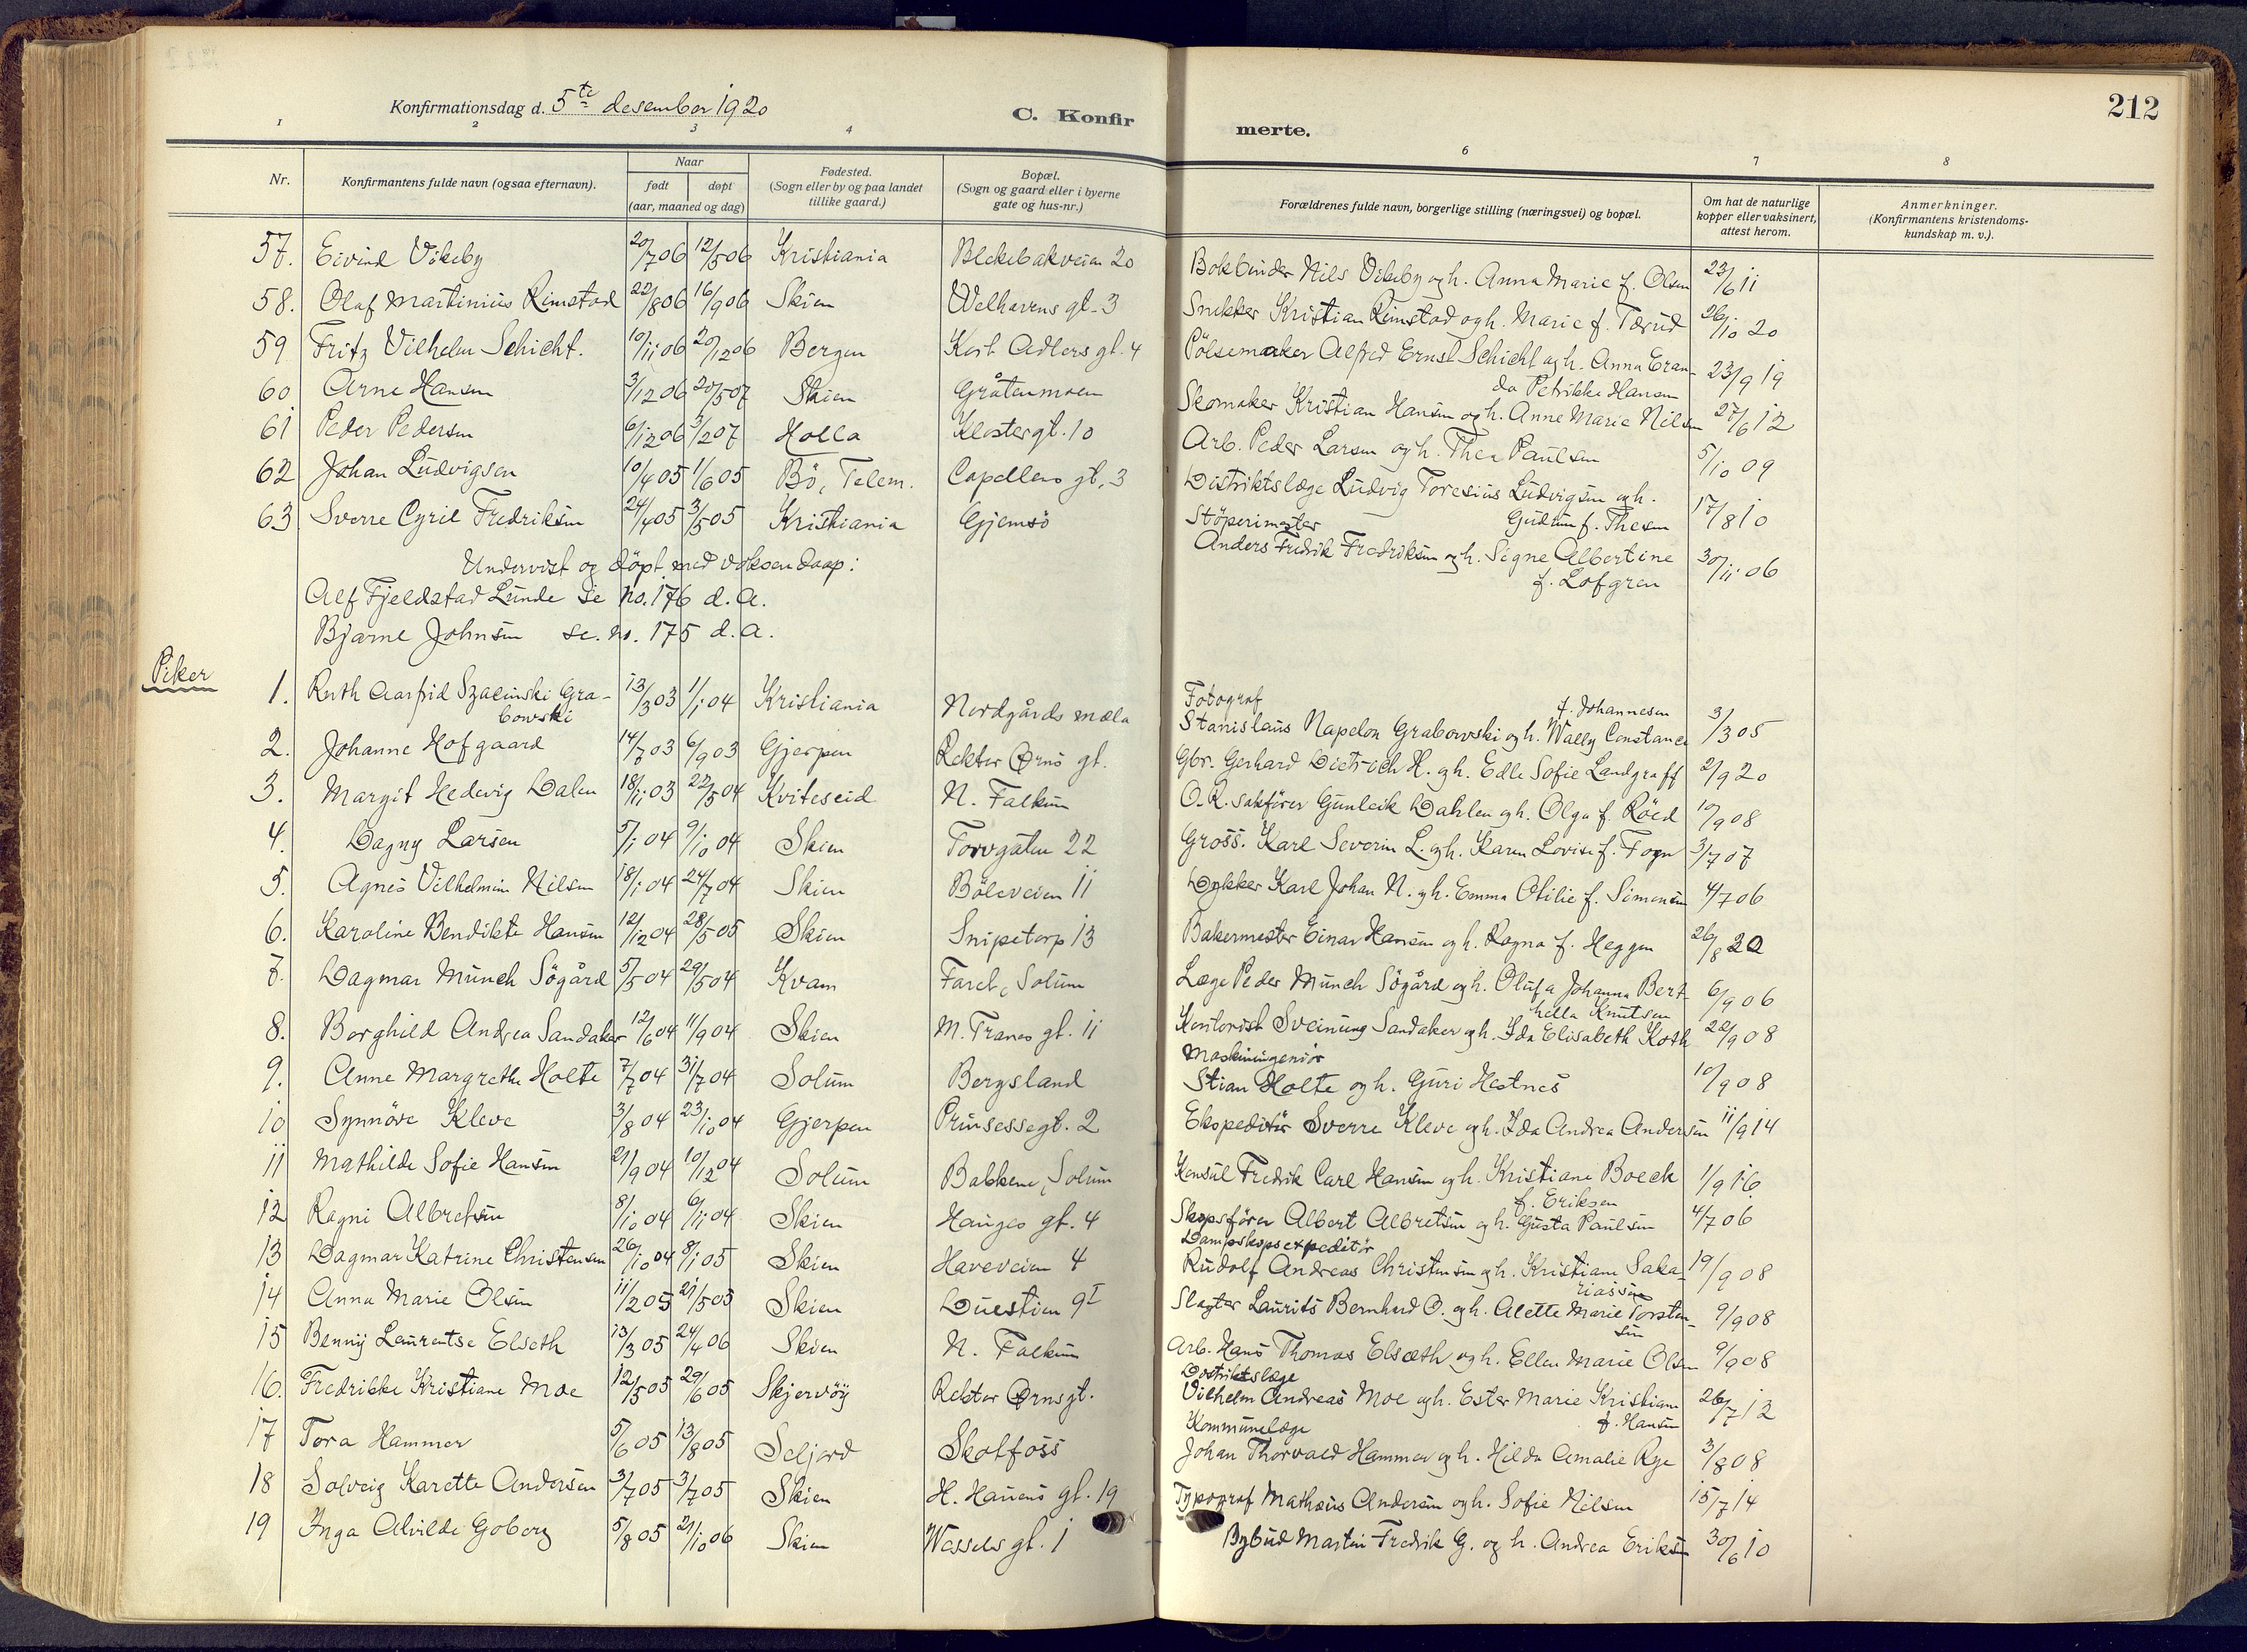 Konfirmationsdag d. 5te desember 1920
C. Konfir
merte.
212
1 2 3 4 6 7 8
Nr.
Konfirmantens fulde navn (ogsaa efternavn).
Naar
født døpt
(aar, maaned og dag)
Fødested.
(Sogn eller by og paa landet
tillike gaard.)
Bopæl.
(Sogn og gaard eller i byerne
gate og hus-nr.)
Forældrenes fulde navn, borgerlige stilling (næringsvei) og bopæl.
Om hat de naturlige
kopper eller vaksinert,
attest herom.
Anmerkninger.
(Konfirmantens kristendoms-
kundskap m. v.).
57. Eivind Vikeby 20/7 06 12/5 06 Kristiania Blekebakveien 20 Bokbinder Nils Vikeby og h. Anna Marie f. Olsen 23/6 11
58. Olaf Martinius Rimstad 22/8 06 16/9 06 Skien Welhavens gt. 3 Snekker Kristian Rimstad og h. Marie f. Tærud 26/10 20
59 Fritz Vilhelm Schicht. 10/11 06 20/12 06 Bergen Kort Adlers gt. 4 Pölsemaker Alfred Ernst Schicht og h. Anna Eran-
da Petrikke Hansen 23/9 19
60 Arne Hansen 3/12 06 20/5 07 Skien Gråtenmoen Skomaker Kristian Hansen og h. Anne Marie Nilsen 27/6 12
61 Peder Pedersen 6/12 06 3/2 07 Holla Klostergt. 10 Arb. Peder Larsen og h. Thea Paulsen 5/10 09
62 Johan Ludvigsen 10/4 05 1/6 05 Bö, Telem. Capellens gt. 3 Distriktslæge Ludvig Toresius Ludvigsen og h.
Gudrun f. Thesen 17/8 10
63 Sverre Cyril Fredriksen 24/4 05 3/5 05 Kristiania Gjemsö Stöperimester
Anders Fredrik Fredriksen og h. Signe Albertine
f. Lofgren 30/11 06
Undervist og döpt med voksendaap:
Alf Fjeldstad Lunde se no. 176 d. A.
Bjarne Johnsen se. no. 175 d. A.
Piker
1. Ruth Aasfrid Szacinski Gra-
bowski 13/3 03 1/1 04 Kristiania Nordgårds mæla Fotograf
f. Johannesen
Stanislaus Napelon Grabowski og h. Wally Constance 3/3 05
2. Johanne Hofgaard 14/7 03 6/9 03 Gjerpen Rektor Ørns gt. Gbr. Gerhard Dietrich H. og h. Edle Sofie Landgraff 2/9 20
3. Margit Hedevig Dalen 18/11 03 22/5 04 Kviteseid N. Falkum O.R. sakförer Gunleik Dahlen og h. Olga f. Röed 10/9 08
4. Dagny Larsen 5/1 04 9/10 04 Skien Torvgaten 22 Gross. Karl Severin L. og h. Karen Lovise f. Fogn 3/7 07
5. Agnes Vilhelmine Nilsen 18/1 04 24/7 04 Skien Böleveien 11 Dykker Karl Johan N. og h. Emma Otilie f. Simonsen 4/7 06
6. Karoline Bendikte Hansen 12/12 04 28/5 05 Skien Snipetorp 13 Bakermester Einar Hansen og h. Ragna f. Heggen 26/8 20
7. Dagmar Munch Sögård 5/5 04 29/5 04 Kvam Faret, Solum Læge Peder Munch Sögård og h. Olufa Johanna Bert-
hella Knutsen 6/9 06
8. Borghild Andrea Sandaker 12/6 04 11/9 04 Skien M. Tranes gt. 11 Kontorist Sveinung Sandaker og h. Ida Elisabeth Koth 22/9 08
9. Anne Margrethe Holte 7/7 04 31/7 04 Solum Bergsland Maskiningeniör
Stian Holte og h. Guri Hestnes 10/9 08
10 Synnöve Kleve 3/8 04 23/10 04 Gjerpen Prinsessegt. 2 Ekspeditör Sverre Kleve og h. Ida Andrea Andersen 11/9 14
11 Mathilde Sofie Hansen 21/9 04 10/12 04 Solum Bakkene, Solum Konsul Fredrik Carl Hansen og h. Kristiane Boeck 1/9 16
12 Ragni Albretsen 8/10 04 6/11 04 Skien Hauges gt. 4 f. Eriksen
Skipsförer Albert Albretsen og h. Gusta Paulsen 4/7 06
13 Dagmar Katrine Christensen 26/10 04 8/1 05 Skien Haveveien 4 Dampskipsexpeditör
Rudolf Andreas Christensen og h. Kristiane Saka-
riassen 19/9 08
14 Anna Marie Olsen 11/2 05 21/5 05 Skien Duestien 9I Slagter Laurits Bernhard O. og h. Alette Marie Torsten-
sen 9/9 08
15 Benny Laurentse Elseth 13/3 05 24/4 06 Skien N. Falkum Arb. Hans Thomas Elsæth og h. Ellen Marie Olsen 9/9 08
16. Fredrikke Kristiane Moe 12/5 05 29/6 05 Skjervöy Rektor Ørnsgt. Distriktslæge
Vilhelm Andreas Moe og h. Ester Marie Kristiane
f. Hansen 26/7 12
17 Tora Hammer 5/6 05 13/8 05 Seljord Skotfoss Kommunelæge
Johan Thorvald Hammer og h. Hilda Amalie Rye 3/8 08
18 Solveig Karette Andersen 3/7 05 3/7 05 Skien H. Hauens gt. 19 Typograf Mathæus Andersen og h. Sofie Nilsen 15/7 14
19 Inga Alvilde Goberg 5/8 05 21/10 06 Skien Wessels gt. 1 Bybud Martin Fredrik G. og h. Andrea Eriksen 30/6 10